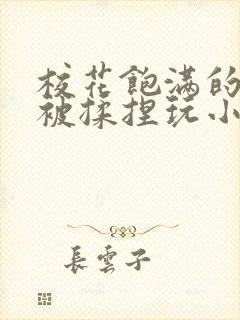 校花飽满的
被揉捏玩小
長雲子